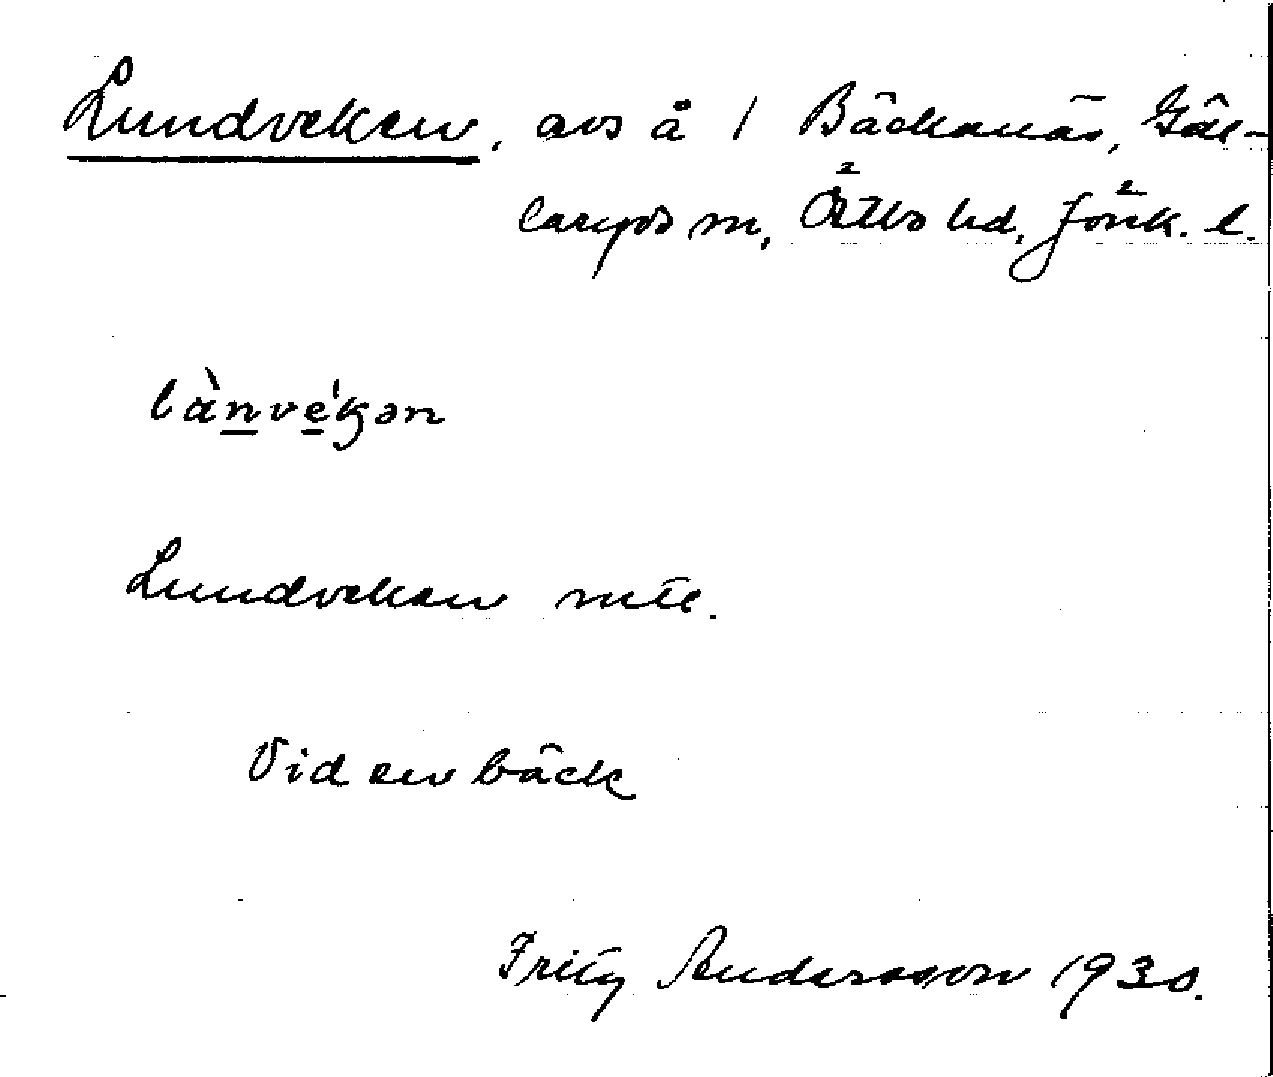 Lundveken, avs å 1 Bäckanäs, Gäl-
laryds sn, Östbo hd, Jönk. l.
lànvékən
Lundveken mtl.
Vid en bäck
Fritz Andersson 1930.